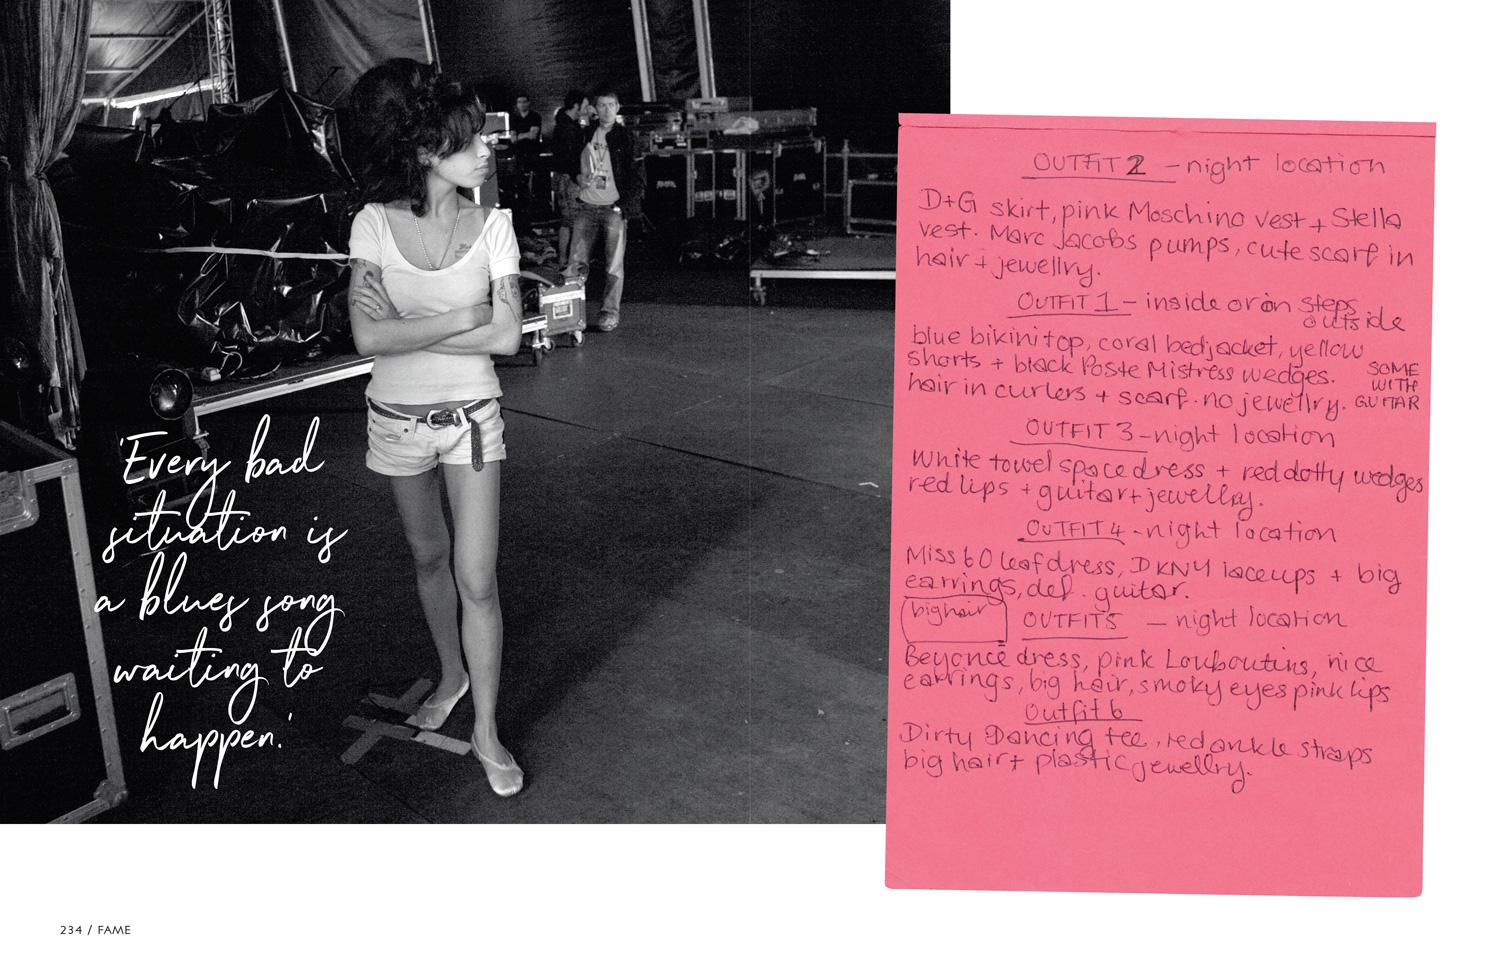 'Every bad
situation is
a blues song
waiting to
happen.'
OUTFIT 2 - night location
D+G skirt, pink Moschino vest + Stella
vest. Marc Jacobs pumps, cute scarf in
hair + jewellry.
OUTFIT 1 - inside or on steps
outside
blue bikini top, coral bedjacket, yellow
shorts + black Poste Mistress wedges.
hair in curlers + scarf. no jewellry.
SOME
WITH
GUITAR
OUTFIT 3 - night location
White towel space dress + red dotty wedges
red lips + guitar + jewellry.
OUTFIT 4 - night location
Miss 60 leaf dress, DKNY laceups + big
earrings, def. guitar.
big hair
OUTFIT 5 - night location
Beyoncé dress, pink Louboutins, nice
earrings, big hair, smoky eyes pink lips
Outfit 6
Dirty Dancing tee, red ankle straps
big hair + plastic jewellry.
234 / FAME